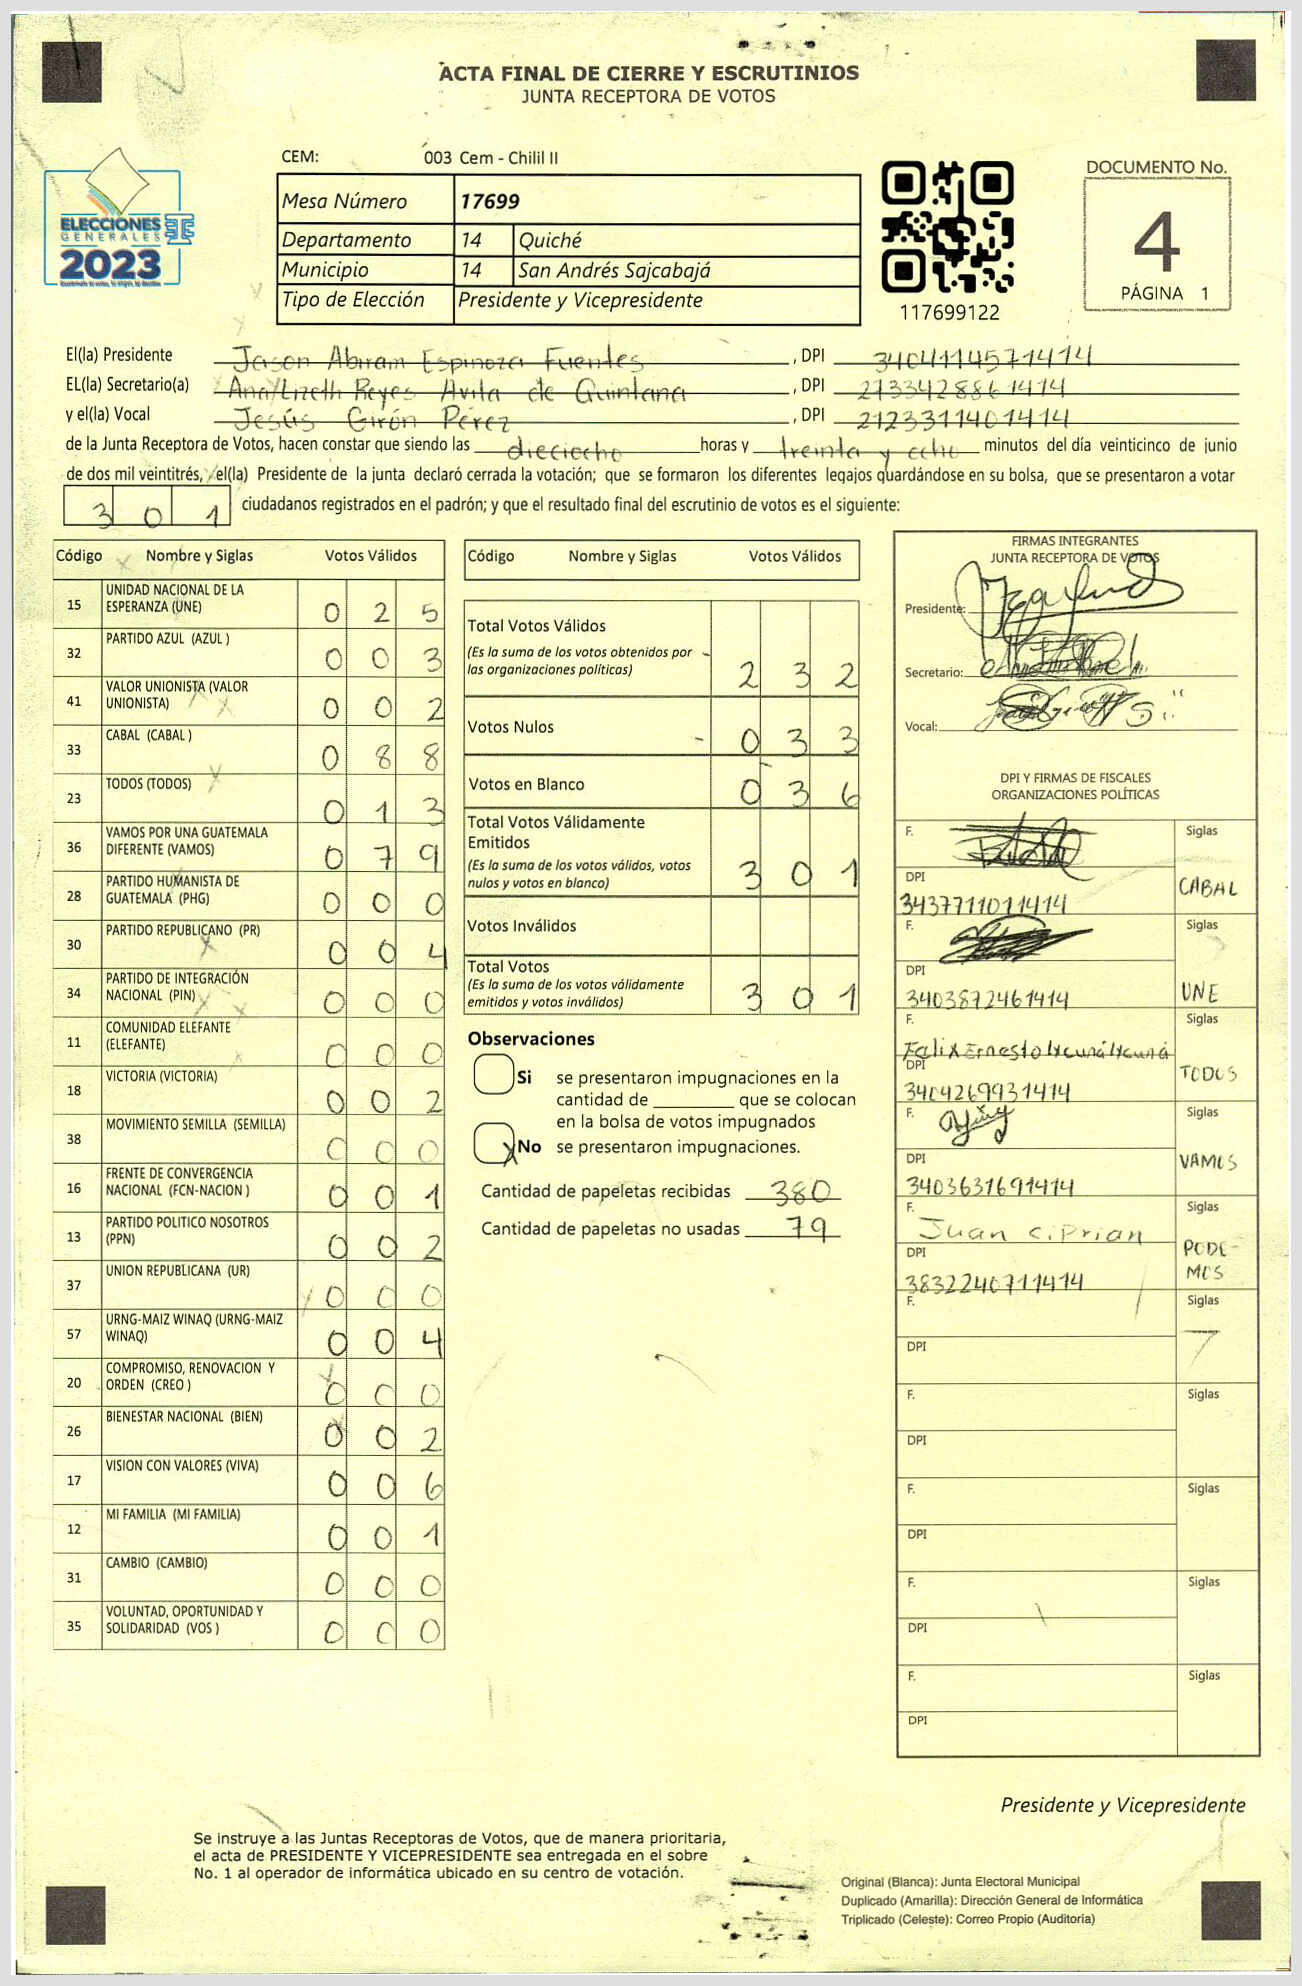 ACTA FINAL DE CIERRE Y ESCRUTINIOS
JUNTA RECEPTORA DE VOTOS
CEM: 003 Cem - Chilil II
ELECCIONES
GENERALES
2023
Mesa Número 17699
Departamento 14 Quiché
Municipio 14 San Andrés Sajcabajá
Tipo de Elección Presidente y Vicepresidente
117699122
DOCUMENTO No.
4
PÁGINA 1
El(la) Presidente Jason Abiram Espinoza Fuentes, DPI 3404114571414
EL(la) Secretario(a) Ana Lizeth Reyes Avila de Quintana, DPI 2133428861414
y el(la) Vocal Jesús Girón Pérez, DPI 2123311401414
de la Junta Receptora de Votos, hacen constar que siendo las dieciocho horas y treinta y ocho minutos del día veinticinco de junio
de dos mil veintitrés, el(la) Presidente de la junta declaró cerrada la votación; que se formaron los diferentes legajos guardándose en su bolsa, que se presentaron a votar
301 ciudadanos registrados en el padrón; y que el resultado final del escrutinio de votos es el siguiente:
Código Nombre y Siglas Votos Válidos
15 UNIDAD NACIONAL DE LA ESPERANZA (UNE) 0 2 5
32 PARTIDO AZUL (AZUL ) 0 0 3
41 VALOR UNIONISTA (VALOR UNIONISTA) 0 0 2
33 CABAL (CABAL ) 0 8 8
23 TODOS (TODOS) 0 1 3
36 VAMOS POR UNA GUATEMALA DIFERENTE (VAMOS) 0 7 9
28 PARTIDO HUMANISTA DE GUATEMALA (PHG) 0 0 0
30 PARTIDO REPUBLICANO (PR) 0 0 4
34 PARTIDO DE INTEGRACIÓN NACIONAL (PIN) 0 0 0
11 COMUNIDAD ELEFANTE (ELEFANTE) 0 0 0
18 VICTORIA (VICTORIA) 0 0 2
38 MOVIMIENTO SEMILLA (SEMILLA) 0 0 0
16 FRENTE DE CONVERGENCIA NACIONAL (FCN-NACION ) 0 0 1
13 PARTIDO POLITICO NOSOTROS (PPN) 0 0 2
37 UNION REPUBLICANA (UR) 0 0 0
57 URNG-MAIZ WINAQ (URNG-MAIZ WINAQ) 0 0 4
20 COMPROMISO, RENOVACION Y ORDEN (CREO ) 0 0 0
26 BIENESTAR NACIONAL (BIEN) 0 0 2
17 VISION CON VALORES (VIVA) 0 0 6
12 MI FAMILIA (MI FAMILIA) 0 0 1
31 CAMBIO (CAMBIO) 0 0 0
35 VOLUNTAD, OPORTUNIDAD Y SOLIDARIDAD (VOS ) 0 0 0
Código Nombre y Siglas Votos Válidos
Total Votos Válidos 2 3 2
(Es la suma de los votos obtenidos por
las organizaciones políticas)
Votos Nulos 0 3 3
Votos en Blanco 0 3 6
Total Votos Válidamente
Emitidos 3 0 1
(Es la suma de los votos válidos, votos
nulos y votos en blanco)
Votos Inválidos
Total Votos 3 0 1
(Es la suma de los votos válidamente
emitidos y votos inválidos)
Observaciones
Si se presentaron impugnaciones en la
cantidad de ________ que se colocan
en la bolsa de votos impugnados
X No se presentaron impugnaciones.
Cantidad de papeletas recibidas 380
Cantidad de papeletas no usadas 79
FIRMAS INTEGRANTES
JUNTA RECEPTORA DE VOTOS
Presidente:
Secretario:
Vocal:
DPI Y FIRMAS DE FISCALES
ORGANIZACIONES POLÍTICAS
F. Siglas
DPI CABAL
3437711011414
F. Siglas
DPI
3403872461414 UNE
F. Siglas
Felix Ernesto
DPI TODOS
3404269931414
F. Siglas
DPI VAMOS
3403631691414
F. Siglas
Juan Ciprian
DPI PODE-
3832240711414 MOS
F. Siglas
DPI
F. Siglas
DPI
F. Siglas
DPI
F. Siglas
DPI
F. Siglas
DPI
Presidente y Vicepresidente
Se instruye a las Juntas Receptoras de Votos, que de manera prioritaria,
el acta de PRESIDENTE Y VICEPRESIDENTE sea entregada en el sobre
No. 1 al operador de informática ubicado en su centro de votación.
Original (Blanca): Junta Electoral Municipal
Duplicado (Amarilla): Dirección General de Informática
Triplicado (Celeste): Correo Propio (Auditoría)